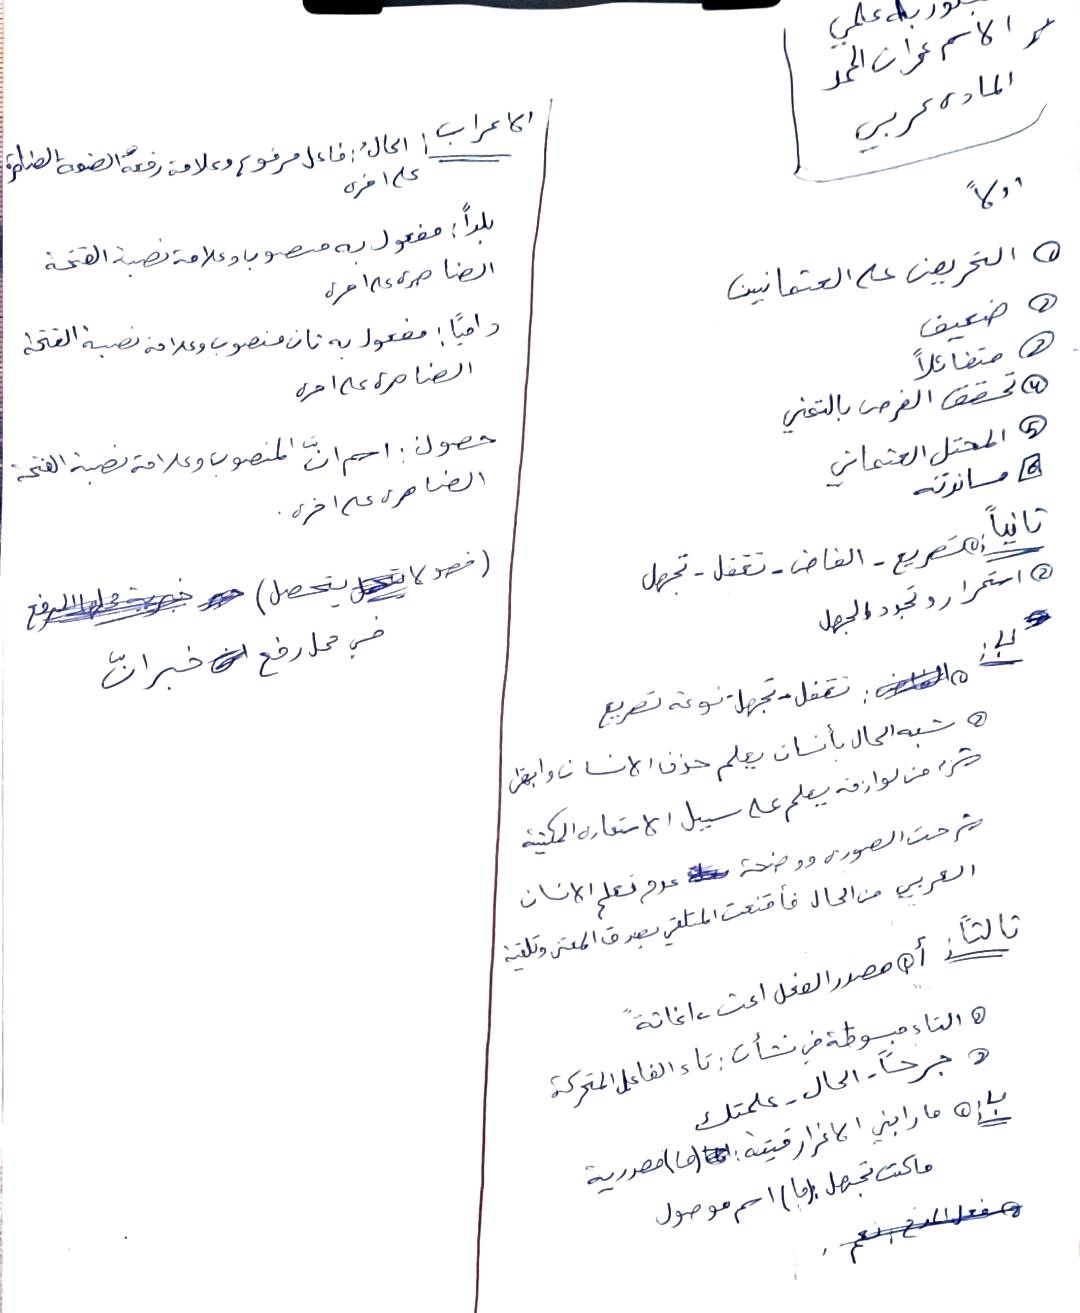 علمي
الأسم عمران الحمد
الماده عربي
اولاً
① التحريض على العثمانيين
② ضعيف
③ متفائلاً
④ تحقق الغرض بالتغني
⑤ المحتل العثماني
⑥ مساندته
ثانياً: ① تصريع - الفاض - تغفل - تجهل
② استمرار وتجدد الجهل
ب:
① : تغفل - تجهل نوعه تصريع
② شبه الحال بأنسان يعلم حذف الانسان وابقى
شيء من لوازمه يعلم على سبيل الاستعاره المكنية
شرحت الصوره ووضحة عدم تعلم الانسان
العربي من الحال فأقنعت المتلقي بصدق المعنى
ثالثاً: أ ① مصدر الفعل اغث - اغاثةً
② التاء مبسوطة في نشأت: تاء الفاعل المتحركة
③ جرحاً - الحال - علمتك
ب: ① ما رابني الا غرار قتيبة: (ما) مصدرية
ماكنت تجهل: (ما) اسم موصول
الاعراب: الحالُ: فاعل مرفوع وعلامة رفعهُ الضمة الظاهرة
على اخره
بلداً: مفعول به منصوب وعلامة نصبة الفتحة
الضاهره على اخره
دامياً: مفعول به ثان منصوب وعلامة نصبة الفتحة
الضاهره على اخره
حصول: اسم انّ المنصوب وعلامة نصبة الفتحة
الضاهره على اخره.
(لا يتحصل)
في محل رفع خبر انّ